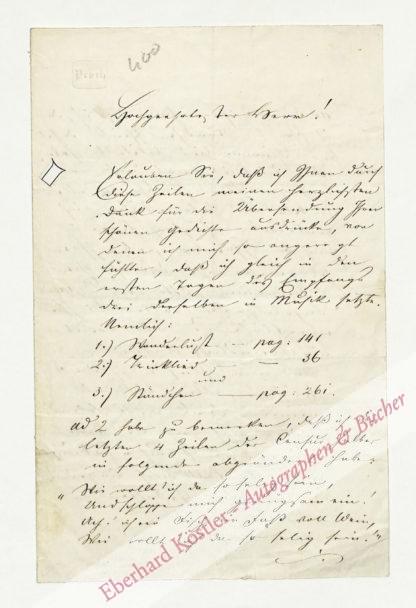 Proch
400
Hochgeehrtester Herr!
Erlauben Sie, daß ich Ihnen durch
diese Zeilen meinen herzlichsten
Dank für die Übersendung Ihrer
schönen Gedichte ausdrücke, von
denen ich mich so angeregt
fühlte, daß ich gleich in den
ersten Tagen des Empfangs
drei derselben in Musik setzte.
Nemlich:
1.) Wanderlust — pag: 141
2.) Trinklied — 36
und
3.) Ständchen — pag: 261.
ad 2 habe zu bemerken, daß ich die
letzten 4 Zeilen der Censur
in folgende abgeändert habe:
„Wie wollt' ich da so selig
und
Ach! ich im Faß voll Wein,
Wie wollt ich da so selig sein!"
Eberhard Köstler - Autographen & Bücher